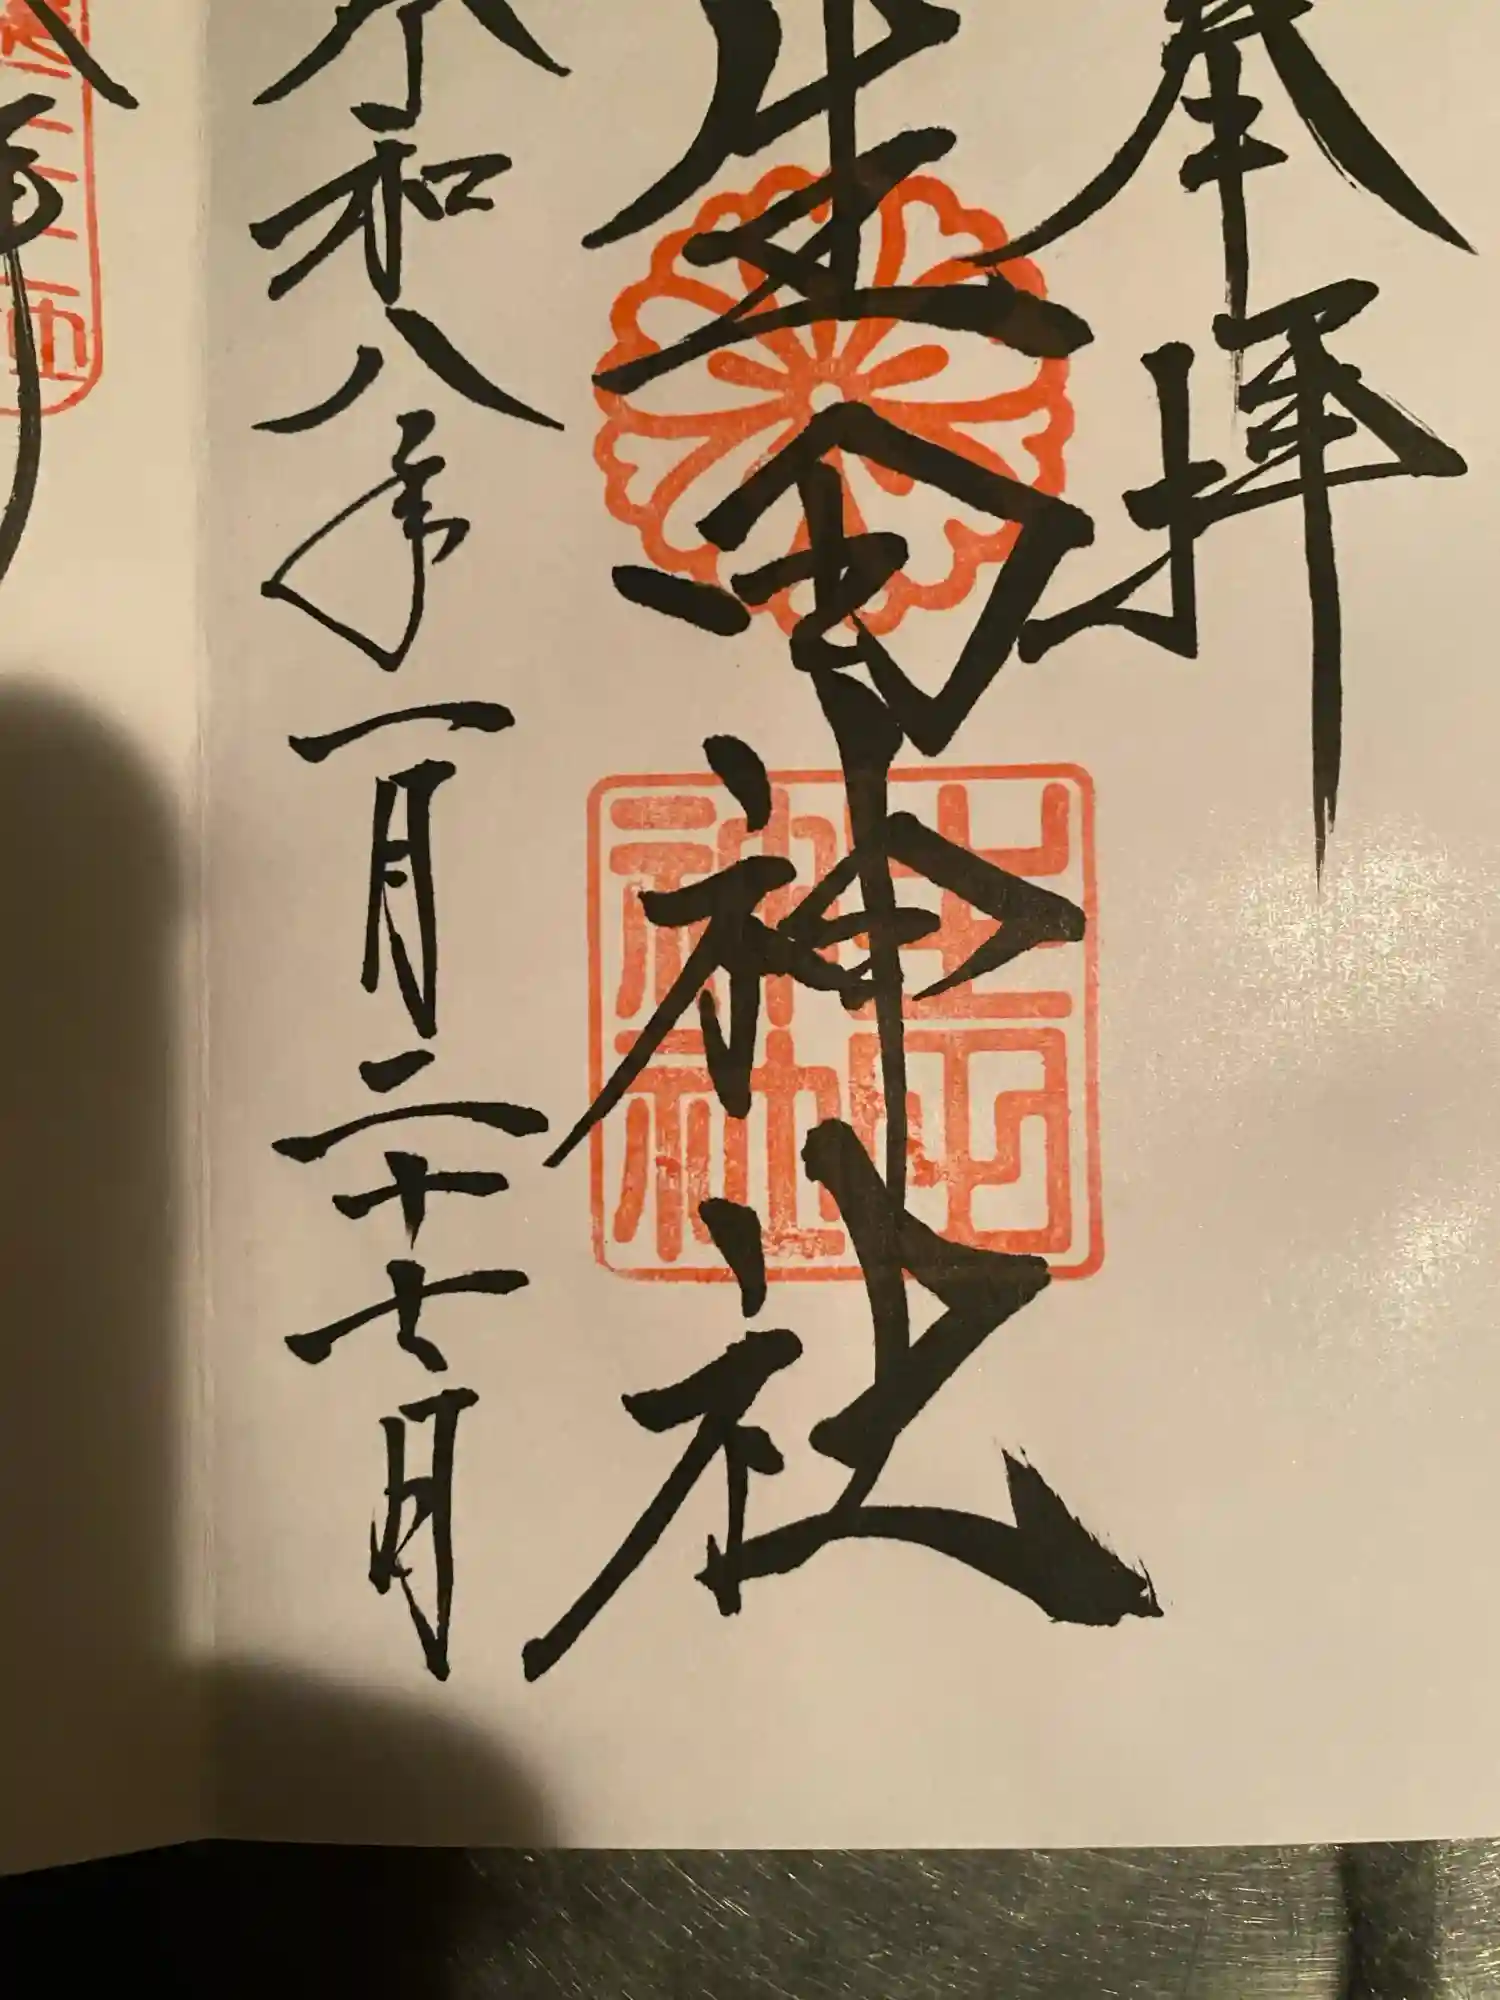 奉拝
生田神社
生田神社
令和八年一月二十七日